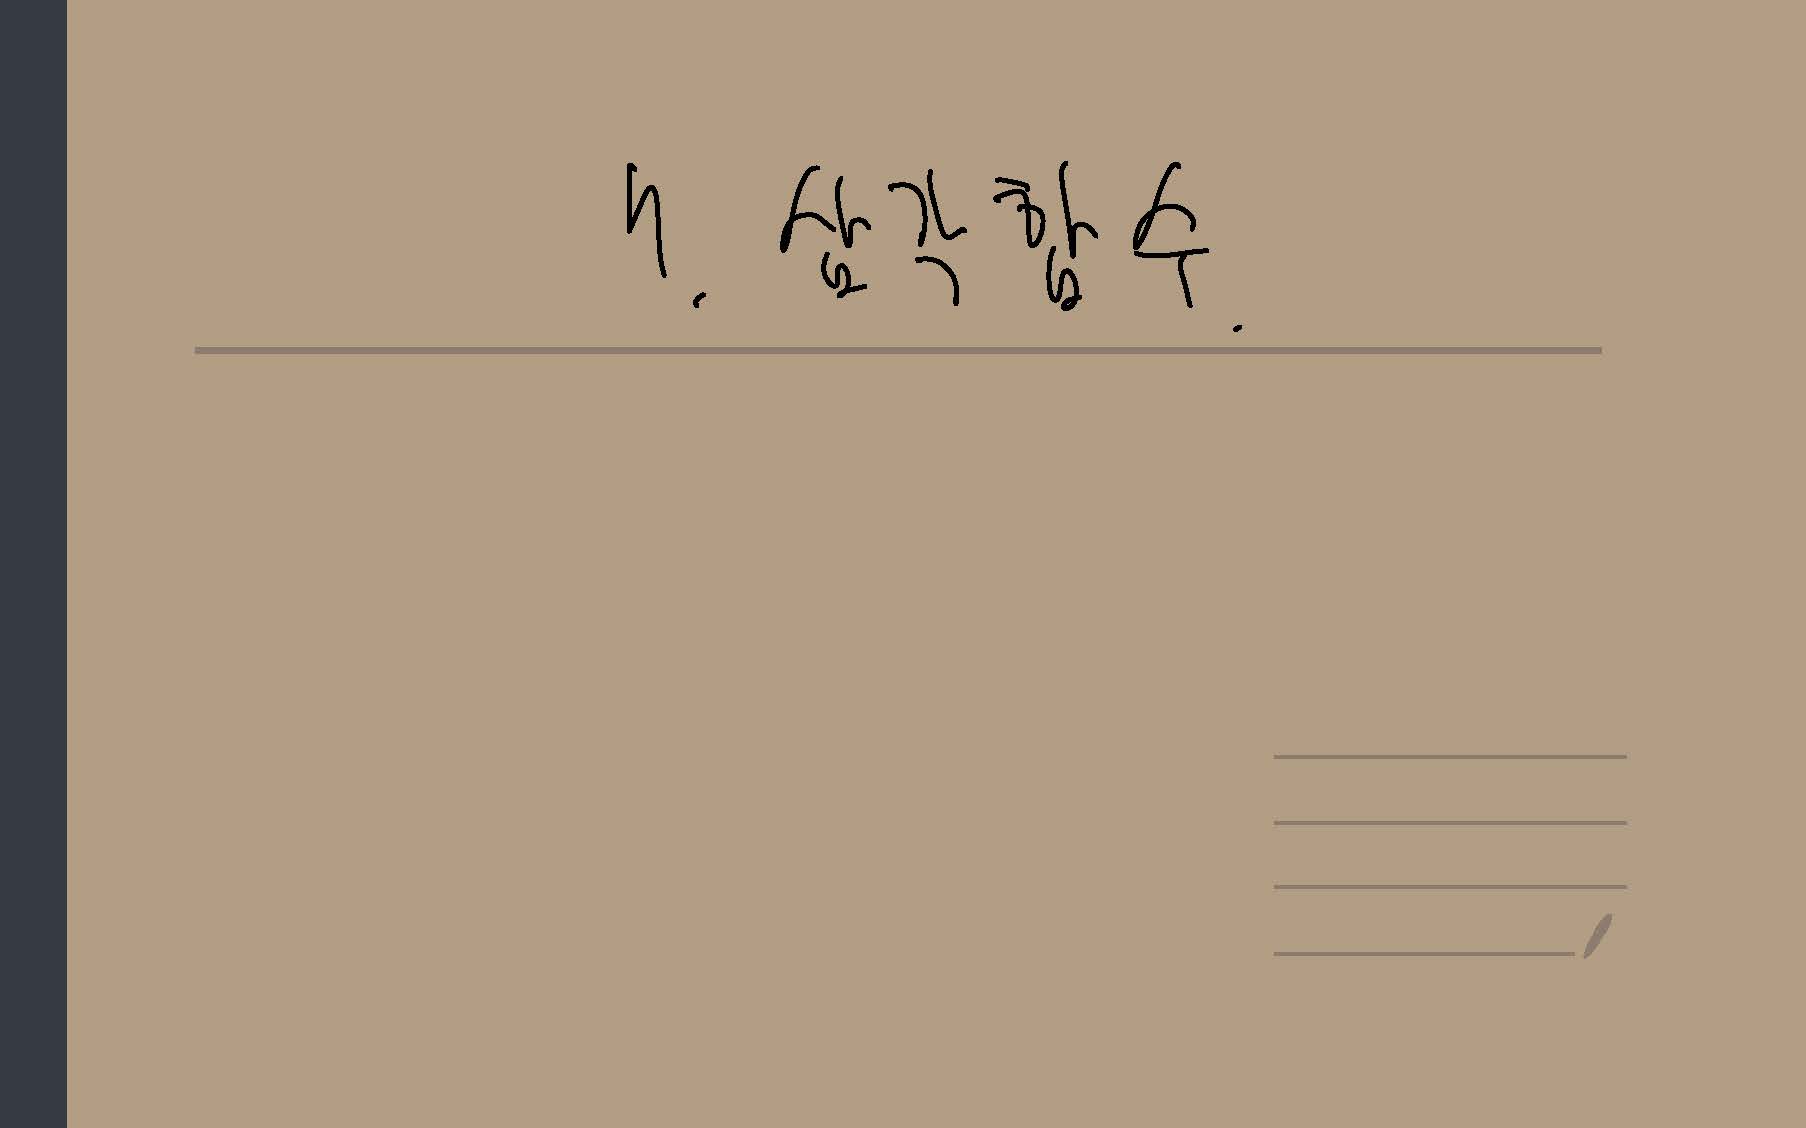 4. 삼각함수.